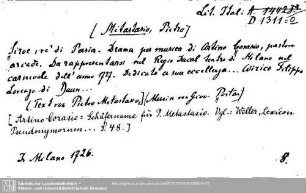 Lit. Ital. A
D 1311 0
[Metastasio, Pietro]
Siroe, re di Persia. Drama per musica di Artino Corasio, pastore
arcade. Da rappresentarsi nel Regio Ducal Teatro di Milano nel
carnovale dell'anno 1727. Dedicato a sua eccellenza ... Wirico Filippo
Lorenzo di Daun ...
(Text von Pietro Metastasio) (Musica von Giov. Porta)
[Artino Corasio = Schäfername für P. Metastasio. Vgl.: Weller, Lexicon
Pseudonymorum ... S. 48.]
In Milano 1726.
8.